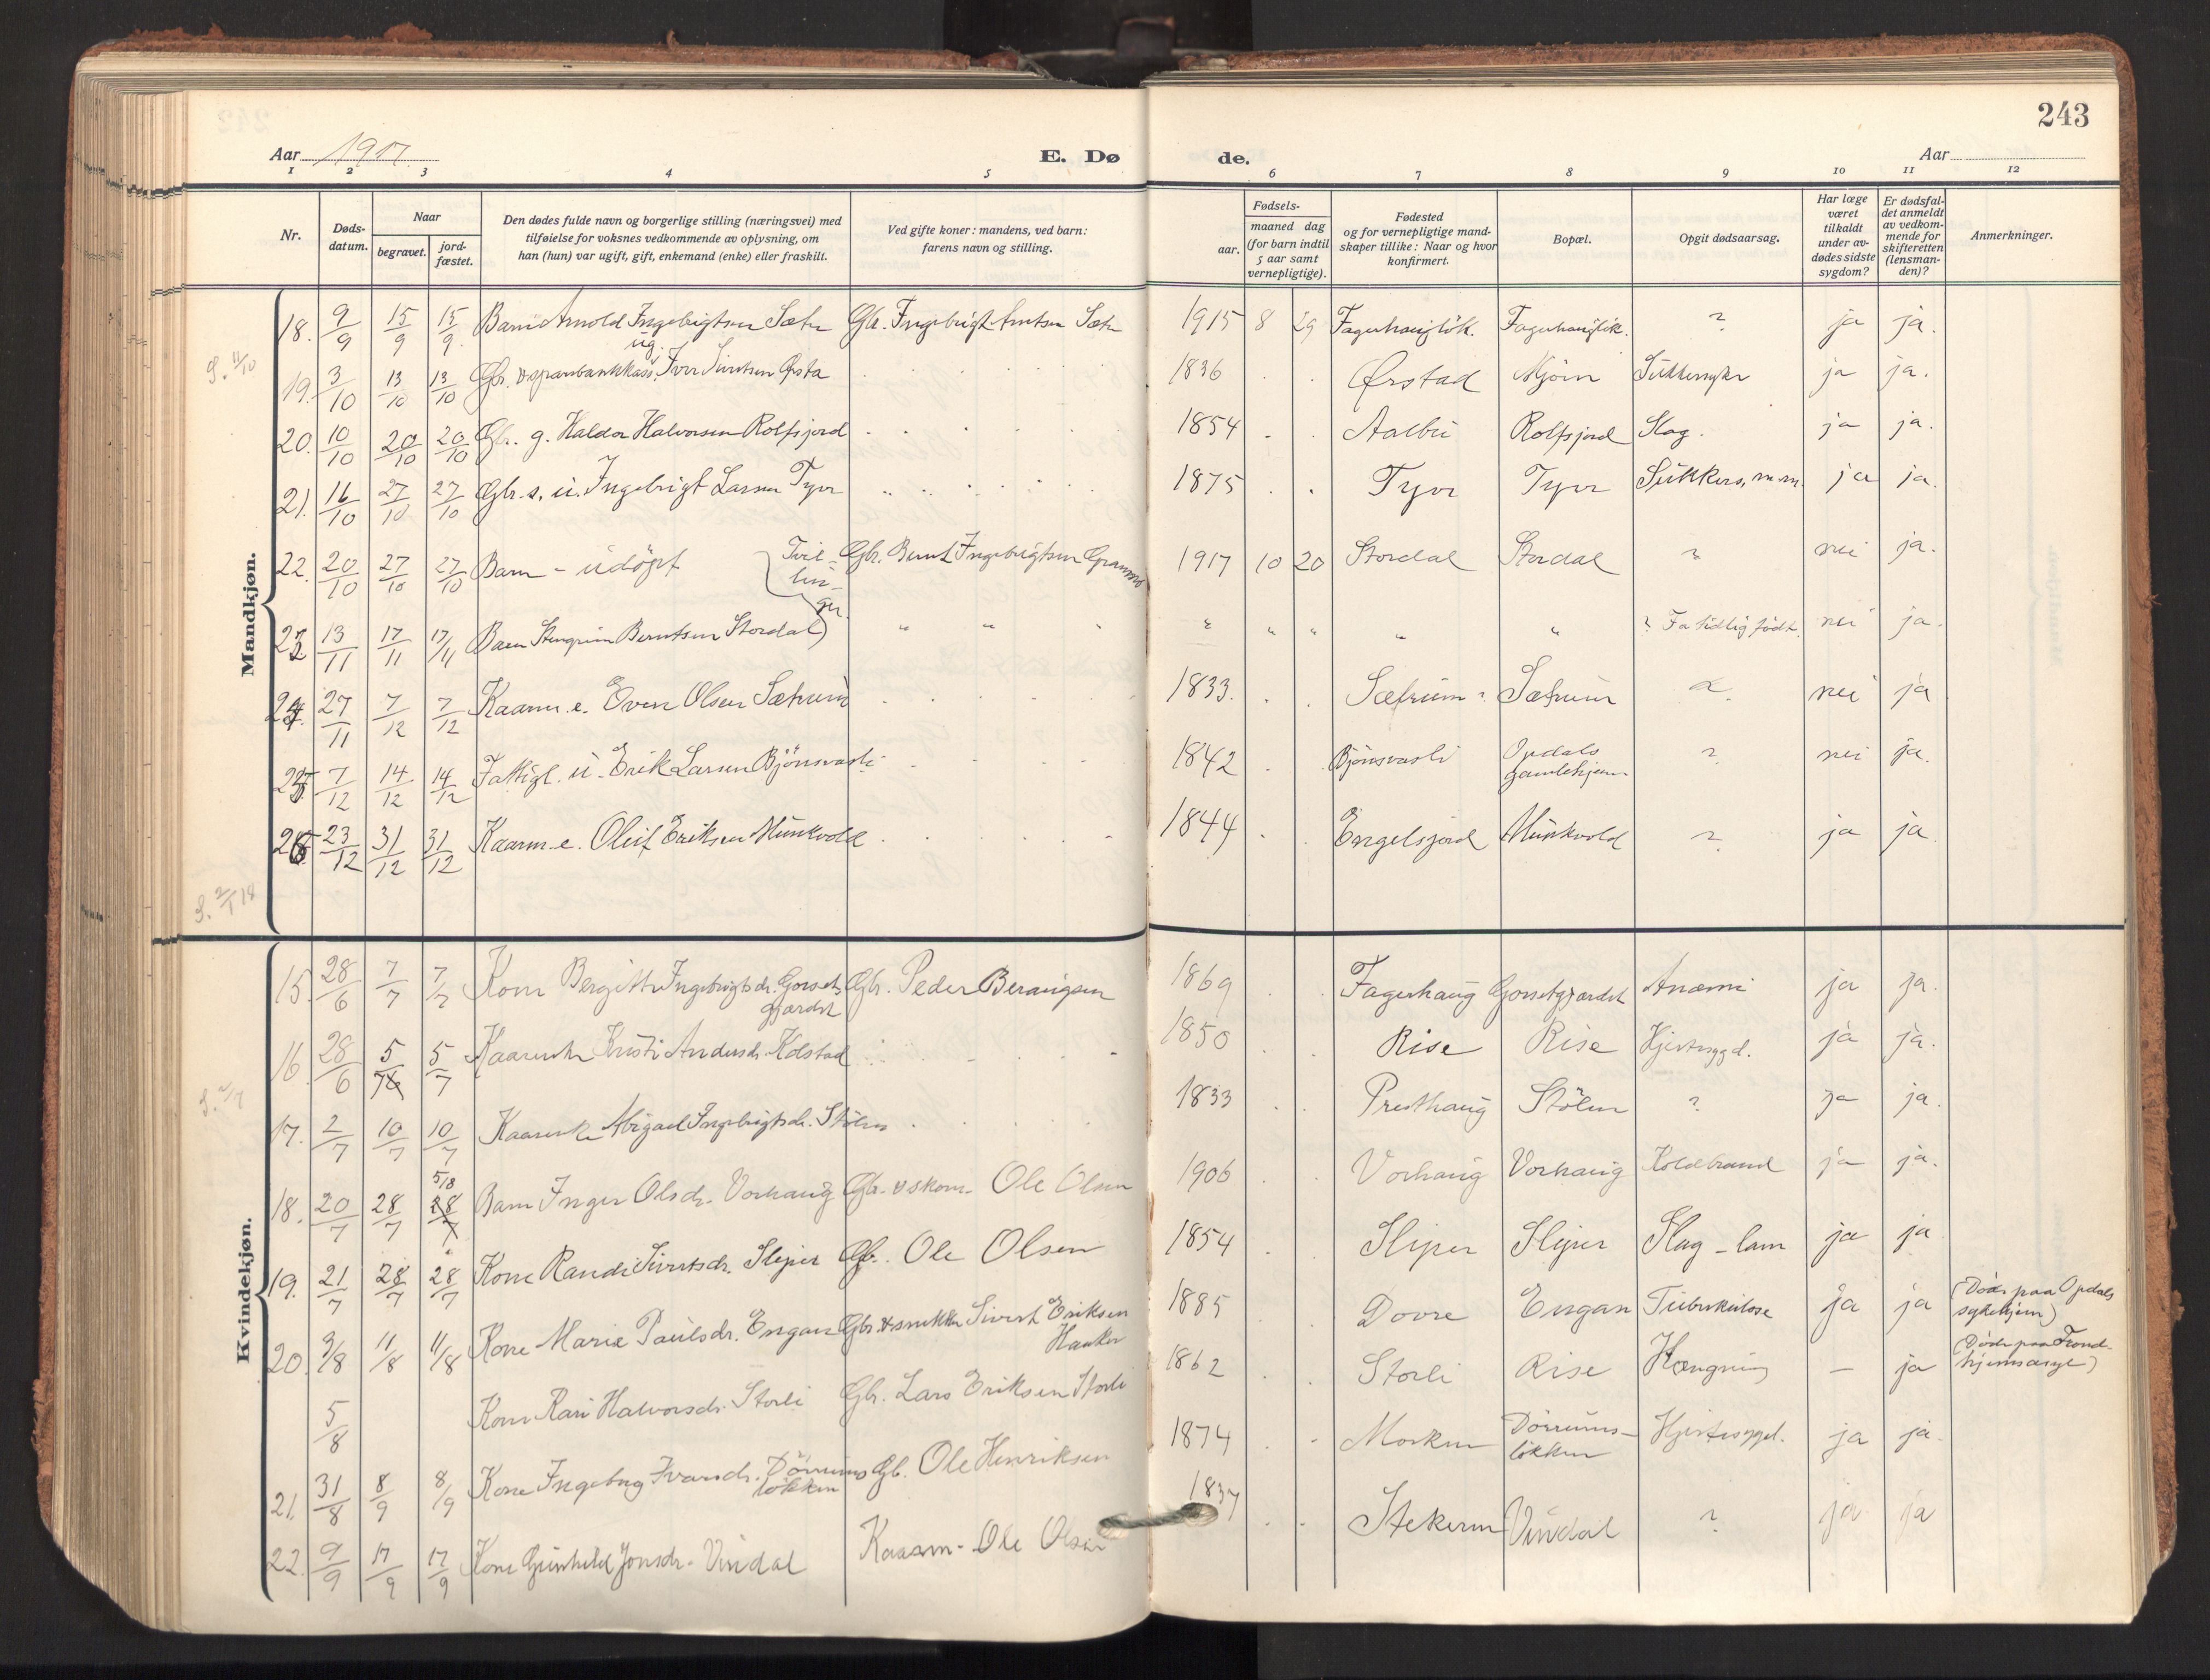 243
Aar 1917
E. Dø
de.
Aar
1 2 3 4 5 6 7 8 9 10 11 12
Nr.
Døds-
datum.
Naar
begravet.
jord-
fæstet.
Den dødes fulde navn og borgerlige stilling (næringsvei) med
tilføielse for voksnes vedkommende av oplysning, om
han (hun) var ugift, gift, enkemand (enke) eller fraskilt.
Ved gifte koner: mandens, ved barn:
farens navn og stilling.
Fødsels-
aar.
maaned dag
(for barn indtil
5 aar samt
vernepligtige).
Fødested
og for vernepligtige mand-
skaper tillike: Naar og hvor
konfirmert.
Bopæl.
Opgit dødsaarsag.
Har læge
været
tilkaldt
under av-
dødes sidste
sygdom?
Er dødsfal-
det anmeldt
av vedkom-
mende for
skifteretten
(lensman-
den)?
Anmerkninger.
Mandkjøn.
18. 9/9 15/9 15/9 Barn Arnold Ingebrigtsen Sæter Gbr. Ingebrigt Arntsen Sæter 1915 8 29 Fagerhaugløk. Fagerhaugløk. ? ja ja.
S. 11/10
19. 3/10 13/10 13/10 Gbr. & sparebankkass. ug. Iver Sivertsen Ørsta 1836 Ørstad Mjöen Sukkersyke ja ja.
20. 10/10 20/10 20/10 Gbr. g. Haldor Halvorsen Rolfsjord 1854 Aalbu Rolfsjord Slag. ja ja.
21. 16/10 27/10 27/10 Gbr. s. u. Ingebrigt Larsen Tyvr 1875 Tyvr Tyvr Sukkers. m.m. ja ja.
22. 20/10 27/10 27/10 Barn - udöpt Tvil-
lin-
ger Gbr. Bernt Ingebrigtsen 1917 10 20 Stordal Stordal ? nei ja.
23 13/11 17/11 17/11 Barn Stengrim Berntsen Stordal " " " " " " " ? For tidlig födt. nei ja.
24. 27/11 7/12 7/12 Kaarm. e. Even Olsen Sætrum 1833. Sætrum ? Sætrum ? nei ja
25 7/12 14/12 14/12 Fattigl. u. Erik Larsen Bjönsvasli 1842 Bjönsvasli Opdals
gamlehjem ? nei ja.
26 23/12 31/12 31/12 Kaarm. e. Oluf Eriksen Munkvold 1844 Engelsjord Munkvold ? ja ja
S. 2/1 18
Kvindekjøn.
15. 28/6 7/7 7/7 Kone Bergitte Ingebrigtsdr. Gorset-
gjærdet Gbr. Peder Berangsen 1869 Fagerhaug Gorsetgjærdet Anæmi ja ja.
16. 28/6 5/7 5/7 Kaarenke Kristi Andersdr. Kolstad 1850 Rise Rise Hjertesygd. ja ja.
S. 2/7
17. 2/7 10/7 10/7 Kaarenke Abigael Ingebrigtsdr. Stölen 1833 Presthaug Stölen ? ja ja.
18. 20/7 28/7 5/8 28/7 Barn Inger Olsdr. Vorhaug Gbr. & skom. Ole Olsen 1906 Vorhaug Vorhaug Koldbrand ja ja.
19. 21/7 28/7 28/7 Kone Randi Sivertsdr. Sliper Gb. Ole Olsen 1854 Sliper Sliper Slag - lam ja ja
20. 3/8 11/8 11/8 Kone Marie Paulsdr. Engan Gbr. & snekker Sivert Eriksen
Hauker 1885 Dovre Engan Tuberkulose ja ja (Döde paa Opdals
sykehjem)
5/8 Kone Kari Halvorsdr. Storli Gbr. Lars Eriksen Storli 1862 Storli Rise Hængning - ja (Döde paa Trond-
hjems asyl)
21. 31/8 8/9 8/9 Kone Ingebrg Ivarsdr. Dörrums
lökken Gb. Ole Henriksen 1874 Morken Dörrums-
lökken Hjertesygd. ja ja.
22. 9/9 17/9 17/9 Kone Gunhild Jonsdr. Vindal Kaarm. Ole Olsen 1837 Stekeren Vindal ? ja ja